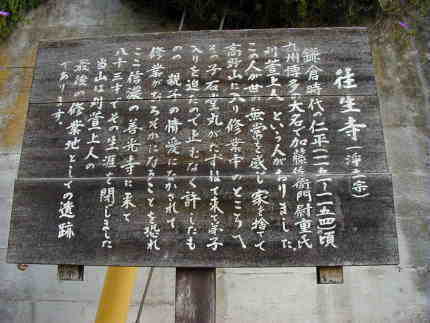 往生寺(浄土宗)
鎌倉時代の仁平(一一五一〜一一五四)頃
九州博多の大名で加藤左衛門尉重氏
刈萱上人という人がおりました。
この人が世の無常を感じ家を捨てて
高野山に入り修業中のところへ
その子石堂丸がたずねて来て弟子
入りを迫たので止むなく許したも
のの親子の情愛にひかされて
修業がおろそかになることを恐れ
ここ信濃の善光寺に来て
八十三才でその生涯を閉しました
当山は刈萱上人の
最後の修業地としての遺跡
であります。